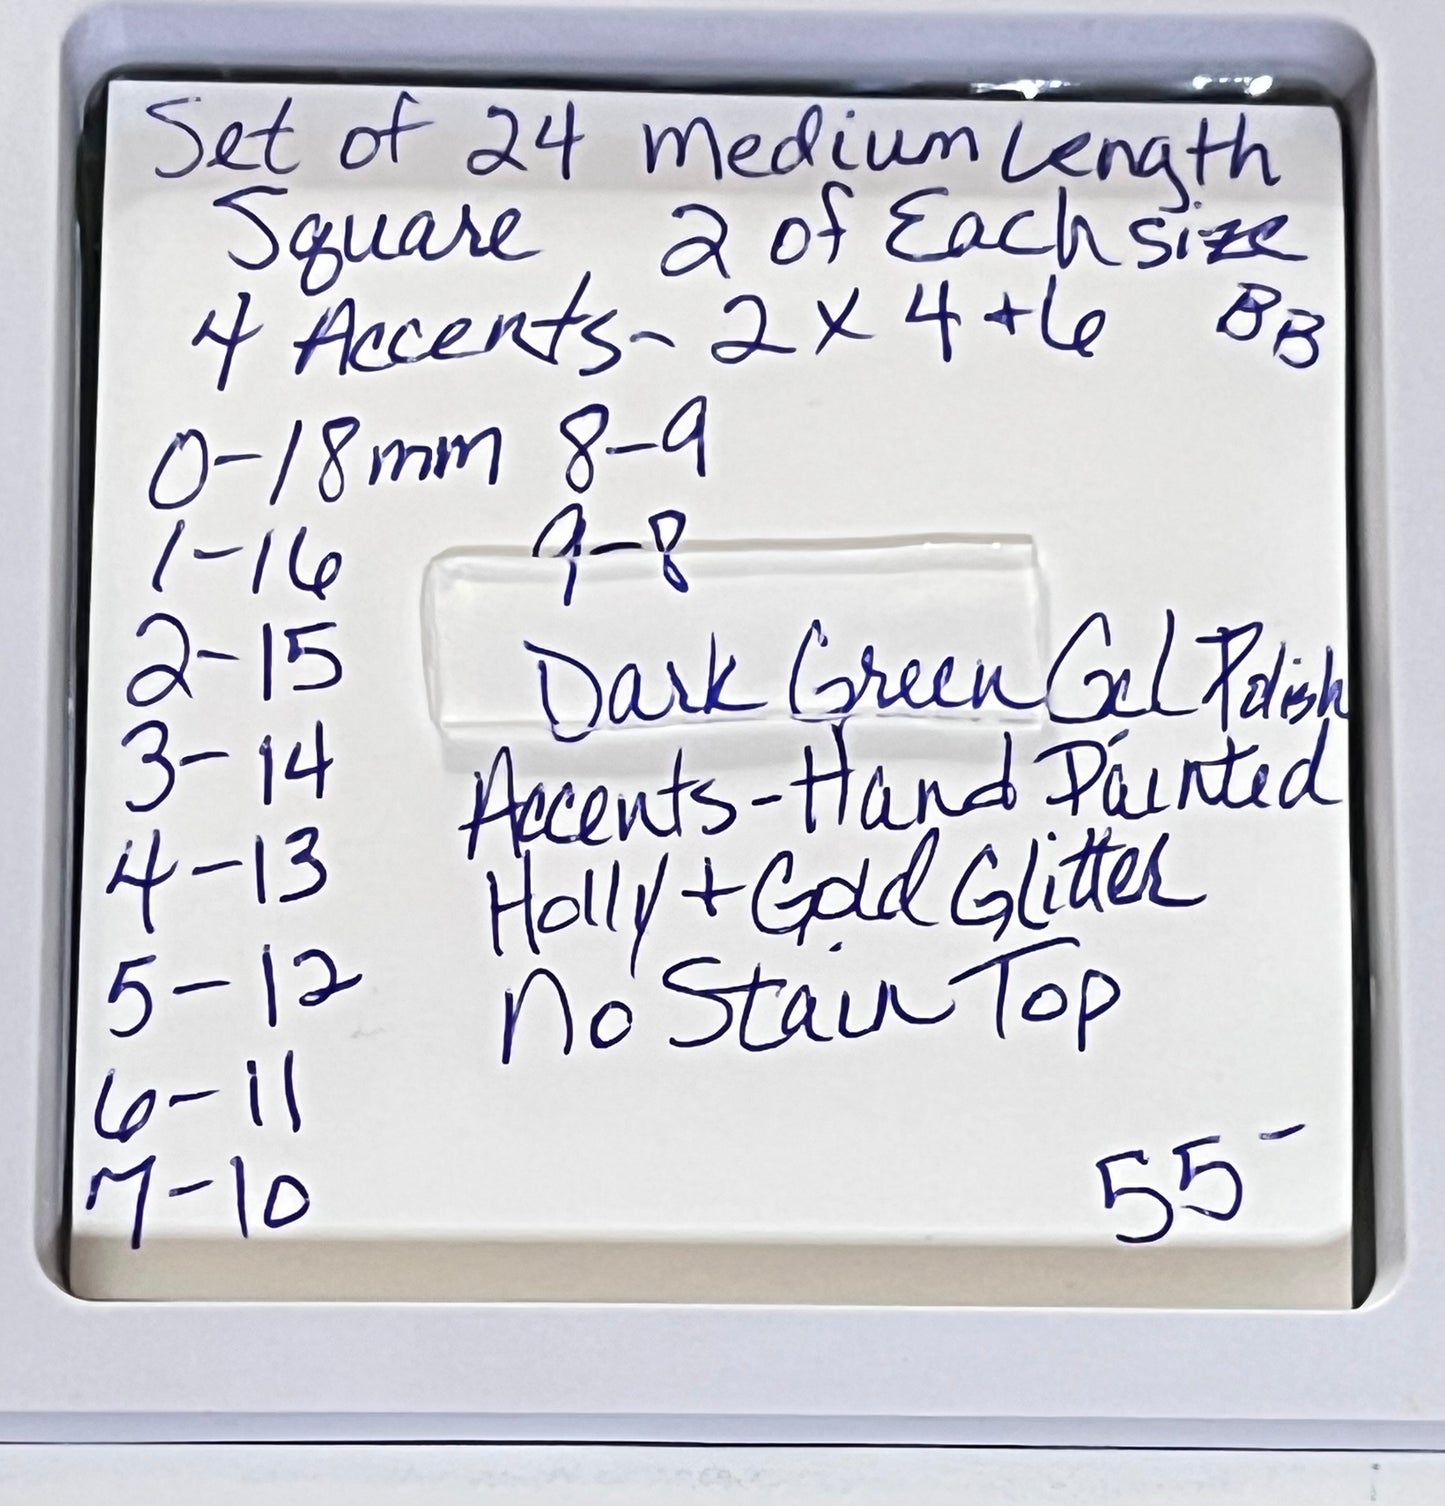 Set of 24 Medium Length
Square 2 of Each size
4 Accents - 2 x 4 + 6 BB
0-18mm 8-9
1-16 9-8
2-15
Dark Green Gel Polish
3-14
Accents - Hand Painted
4-13
Holly + Gold Glitter
5-12
No Stain Top
6-11
7-10
55-